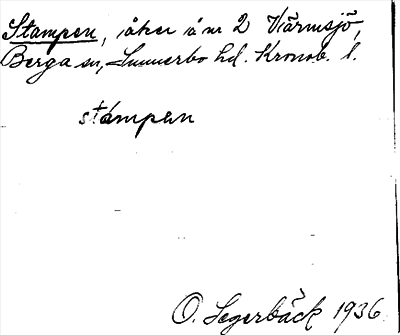 Stampen, åker å nr 2 Värmsjö,
Berga sn, Sunnerbo hd. Kronob. l.
stámpan
O. Segerbäck 1936